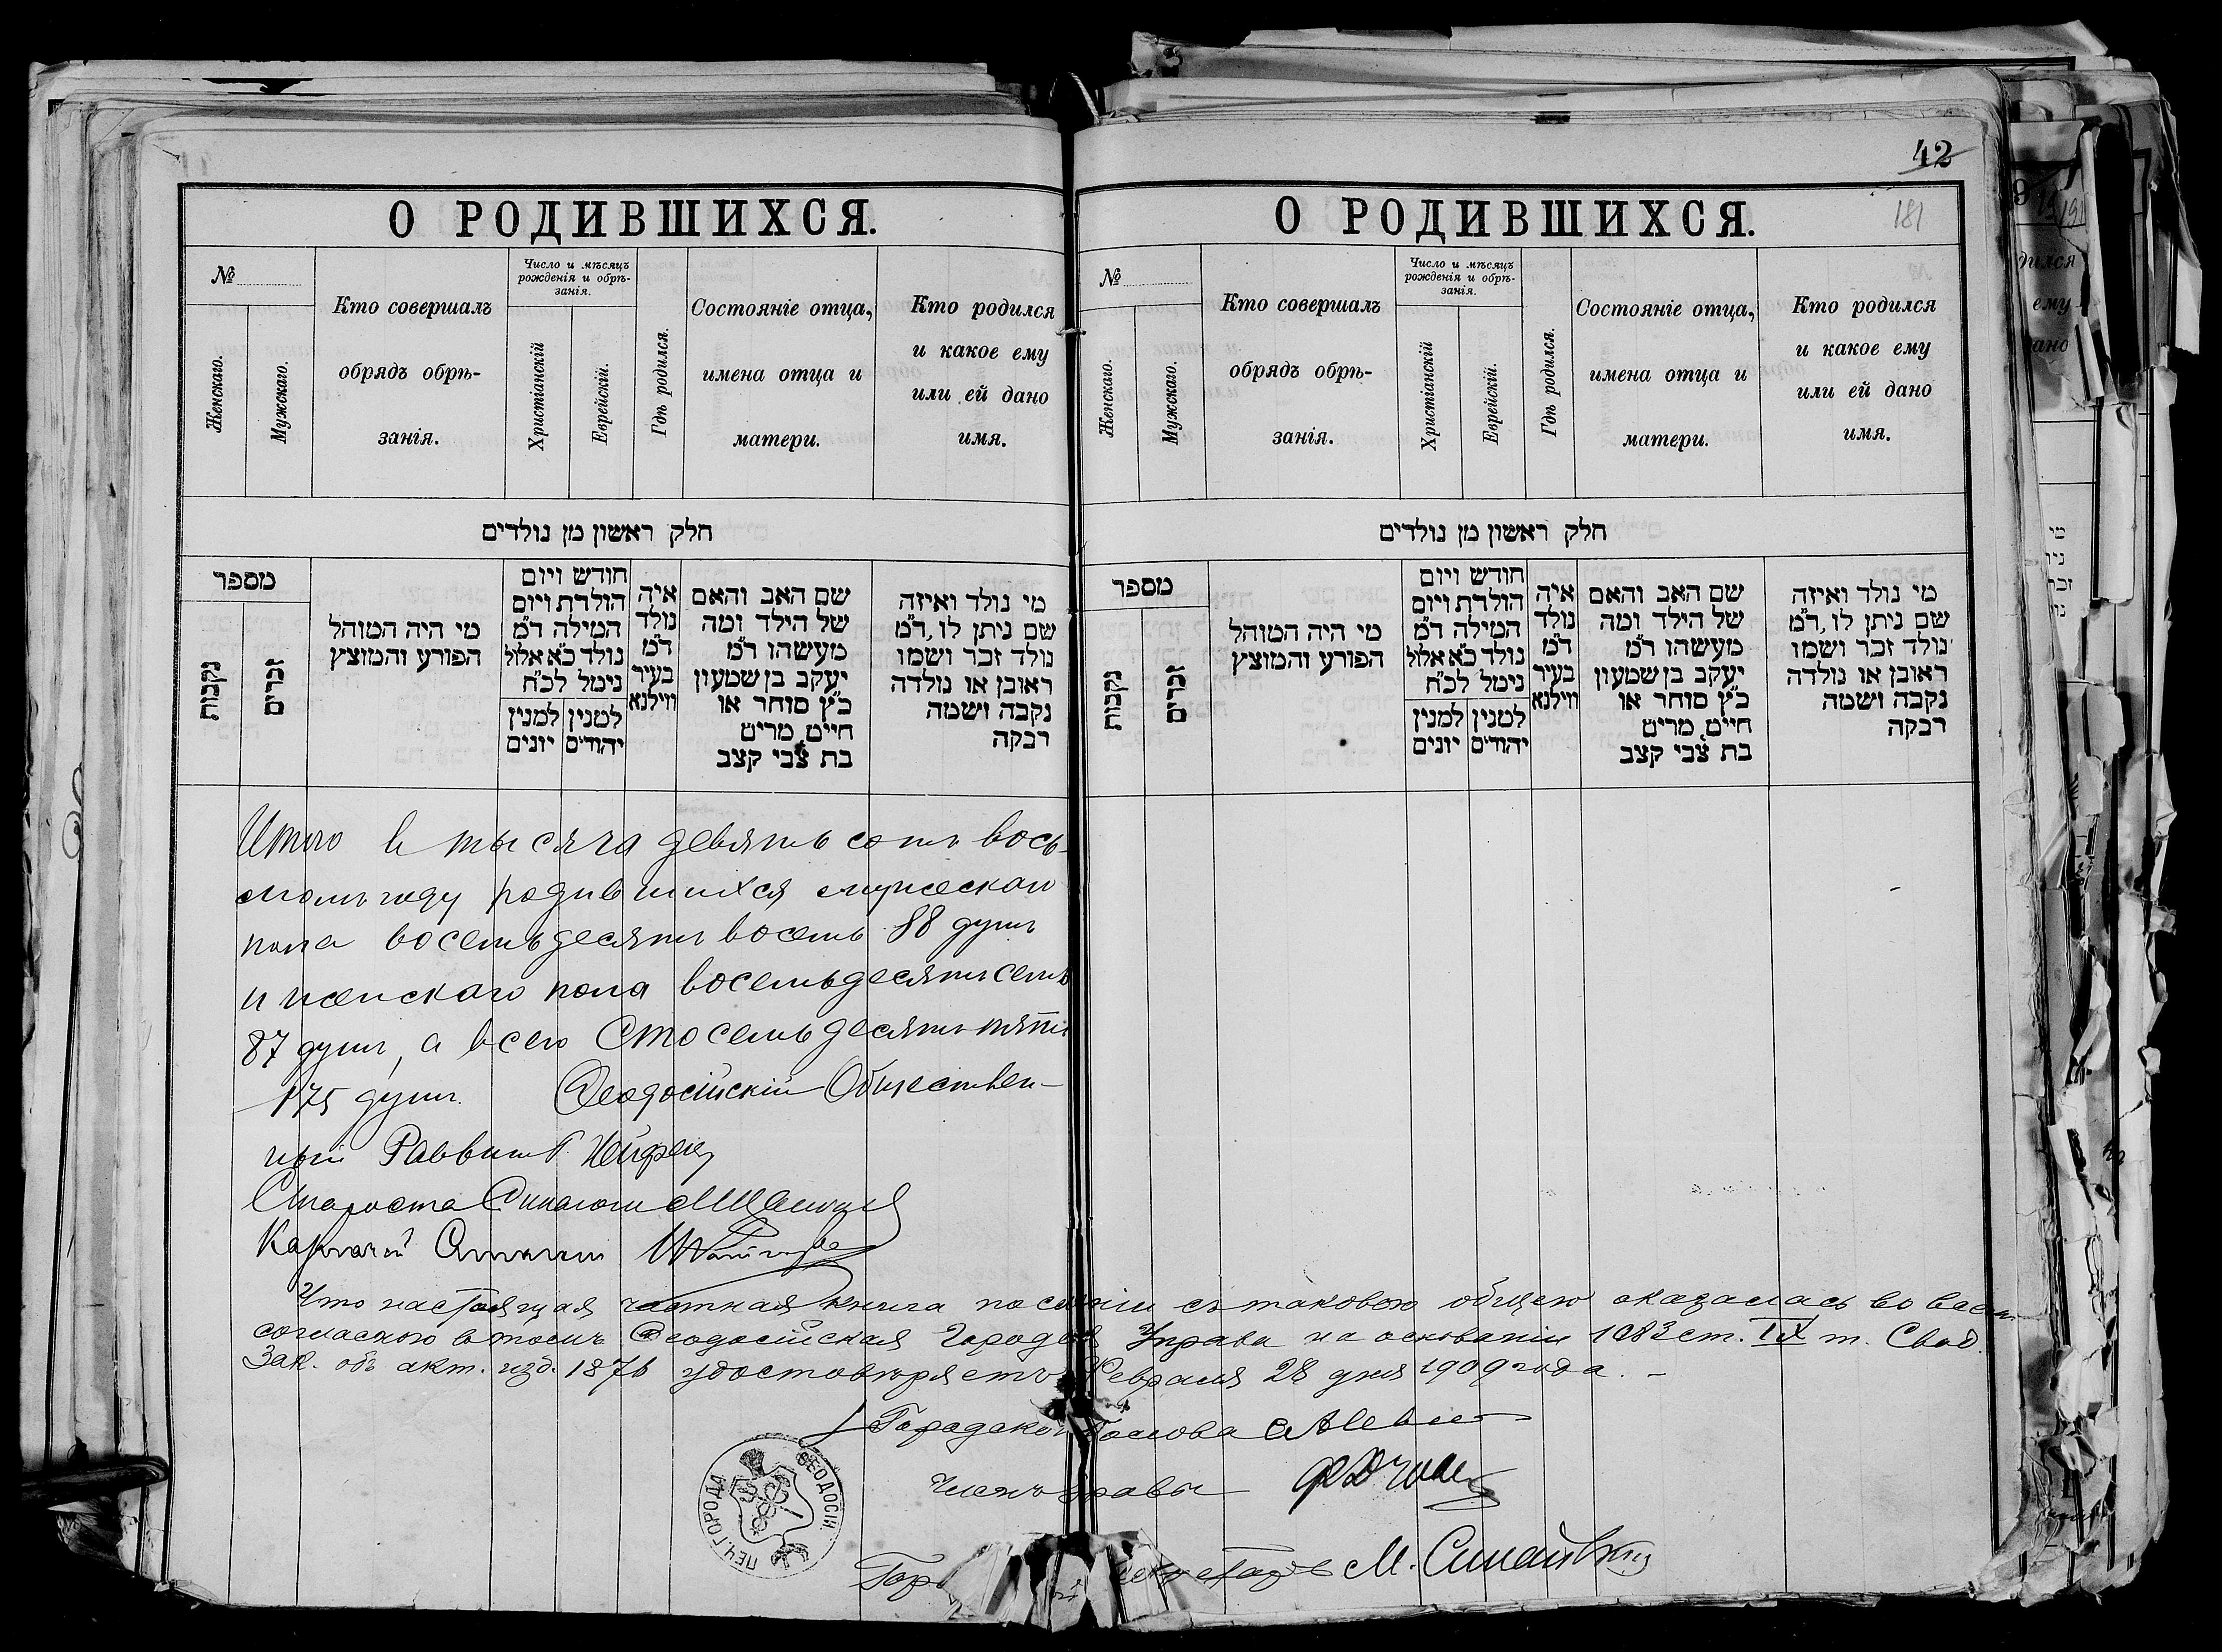 42
181
О РОДИВШИХСЯ.
№
Женскаго.
Мужскаго.
Кто совершалъ
обрядъ обрѣ-
занія.
Число и мѣсяцъ
рожденія и обрѣ-
занія.
Христіанскій
Еврейскій.
Гдѣ родился.
Состояніе отца,
имена отца и
матери.
Кто родился
и какое ему
или ей дано
имя.
חלק ראשון מן נולדים
מספר
נקבות
זכרים
מי היה המוהל
הפורע והמוצץ
חודש ויום
הולדת ויום
המילה ד"מ
נולד כ"א אלול
נימל לכ"ח
למנין יונים
למנין יהודים
איה
נולד
ד"מ
בעיר
ווילנא
שם האב והאם
של הילד ומה
מעשהו ד"מ
יעקב בן שמעון
כ"ץ סוחר או
חיים מרים
בת צבי קצב
מי נולד ואיזה
שם ניתן לו, ד"מ
נולד זכר ושמו
ראובן או נולדה
נקבה ושמה
רבקה
Итого в тысяча девятьсотъ вось-
момъ году родившихся мужескаго
пола восемьдесятъ восемь 88 душъ
и женскаго пола восемьдесятъ семь
87 душъ, а всего Сто семьдесятъ пять
175 душъ. Ѳеодосійскій Обществен-
ный Раввинъ
Староста Синагоги
Казначей
О РОДИВШИХСЯ.
№
Женскаго.
Мужскаго.
Кто совершалъ
обрядъ обрѣ-
занія.
Число и мѣсяцъ
рожденія и обрѣ-
занія.
Христіанскій
Еврейскій.
Гдѣ родился.
Состояніе отца,
имена отца и
матери.
Кто родился
и какое ему
или ей дано
имя.
חלק ראשון מן נולדים
מספר
נקבות
זכרים
מי היה המוהל
הפורע והמוצץ
חודש ויום
הולדת ויום
המילה ד"מ
נולד כ"א אלול
נימל לכ"ח
למנין יונים
למנין יהודים
איה
נולד
ד"מ
בעיר
ווילנא
שם האב והאם
של הילד ומה
מעשהו ד"מ
יעקב בן שמעון
כ"ץ סוחר או
חיים מרים
בת צבי קצב
מי נולד ואיזה
שם ניתן לו, ד"מ
נולד זכר ושמו
ראובן או נולדה
נקבה ושמה
רבקה
Что настоящая частная книга по съ таковою общею оказалась во всемъ
согласною в томъ Ѳеодосійская Городская Управа на основаніи 1083 ст. IX т. Свод.
Зак. объ акт. изд. 1876 удостовѣряетъ Февраля 28 дня 1909 года.
Городской Голова
Членъ Управы
Секретарь М.
ПЕЧ. ГОРОДА ѲЕОДОСІИ.